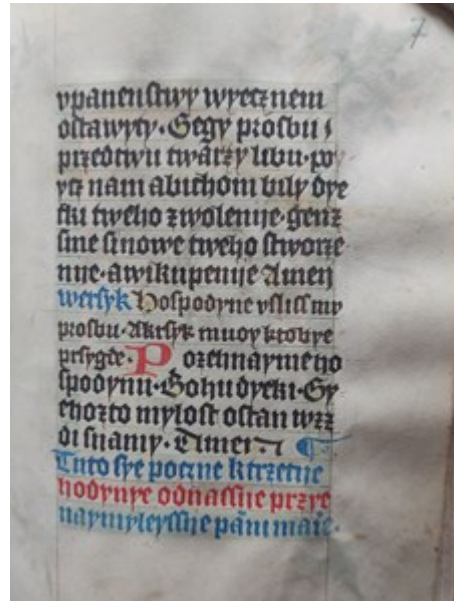 7
vpanenstwy wyecznem
ostawyty. Gegy prosbu s
przedtwu twarzy libu. py
ycz nam abichom bily dye
tki tweho zwolenye. genz
sme sinowe tweho stworze
nye. awikupenye Amen
wersyk Hospodyne vslissmy
prosbu. Akrsyk muoy ktobye
prsygde. Pozehnaymeho
spodynu. Bohu dyeki. Gy
ehozto mylost ostan wzz
di snamy. Amen
Tuto sye poczne ktrzetye
hodynye odnassye przye
naymyleyssye pani marie.